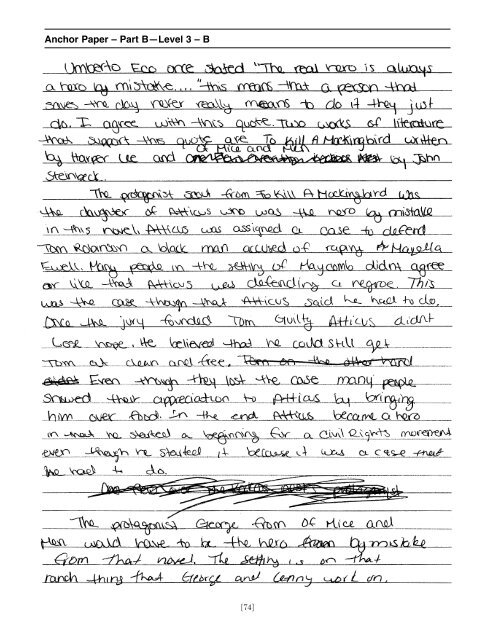 Anchor Paper – Part B—Level 3 – B
Umberto Eco once stated "The real hero is always
a hero by mistake...." this means that a person that
saves the day never really means to do it they just
do. I agree with this quote. Two works of literature
that support this quote are To Kill A Mockingbird written
Of Mice and Men
by Harper Lee and by John
Steinbeck.
The protagonist scout from To Kill A Mockingbird was
the daughter of Atticus who was the hero by mistake
in this novel. Atticus was assigned a case to defend
Tom Robinson a black man accused of raping Mayella
Ewell. Many people in the setting of Maycomb didnt agree
or like that Atticus was defending a negroe. This
was the case though that Atticus said he had to do.
Once the jury founded Tom Guilty Atticus didnt
Lose hope. He believed that he could still get
Tom at clean and free. Tom on the other hand
didnt Even though they lost the case many people
showed their appreciation to Atticus by bringing
him over food. In the end Atticus became a hero
in that he started a beginning for a Civil Rights movement
even though he started it because it was a case that
he had to do.
protagonist
The protagonist George from Of Mice and
Men would have to be the hero by mistake
from that novel. The setting is on that
ranch thing that George and Lenny work on.
[74]